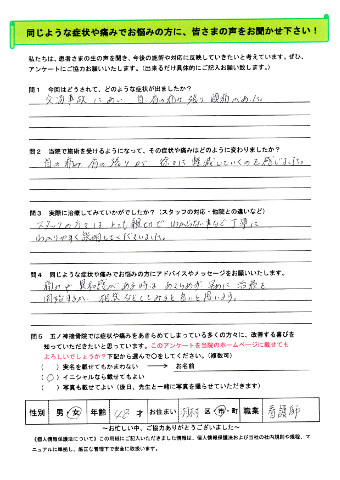 同じような症状や痛みでお悩みの方に、皆さまの声をお聞かせ下さい！
私たちは、患者さまの生の声を聞き、今後の施術や対応に反映していきたいと考えています。ぜひ、
アンケートにご協力お願いいたします。（出来るだけ具体的にご記入お願い致します。）
問１　今回はどうされて、どのような症状が出ましたか？
交通事故にあい 首 肩の痛み 張り 頭痛があった。
問２　当院で施術を受けるようになって、その症状や痛みはどのように変わりましたか？
首の痛み 肩の張りが 徐々に 軽減していくのを感じました。
問３　実際に治療してみていかがでしたか？（スタッフの対応・他院との違いなど）
スタッフの方々は とても 親切で わからない事など 丁寧に
わかりやすく 説明してくださいました。
問４　同じような症状や痛みでお悩みの方にアドバイスやメッセージをお願いいたします。
痛みや 異和感がある時は あきらめず 早めに 治療を
開始するか、相談などしてみると良いと思います。
問５　五ノ神接骨院では症状や痛みをあきらめてしまっている多くの方々に、改善する喜びを
知っていただきたいと思っています。このアンケートを当院のホームページに載せても
よろしいでしょうか？下記から選んで〇をしてください。（複数可）
（　　）実名を載せてもかまわない　→　お名前
（〇）イニシャルなら載せてもよい
（　　）写真も載せてよい（後日、先生と一緒に写真を撮らせていただきます）
性別　男・女　年齢　才　お住まい　区・市・町　職業　看護師
～お忙しい中、ご協力ありがとうございました～
《個人情報保護法について》この用紙にご記入いただきました情報は、個人情報保護法および当社の社内規則や規程、マ
ニュアルに準拠し、厳正な管理下で安全に取扱います。